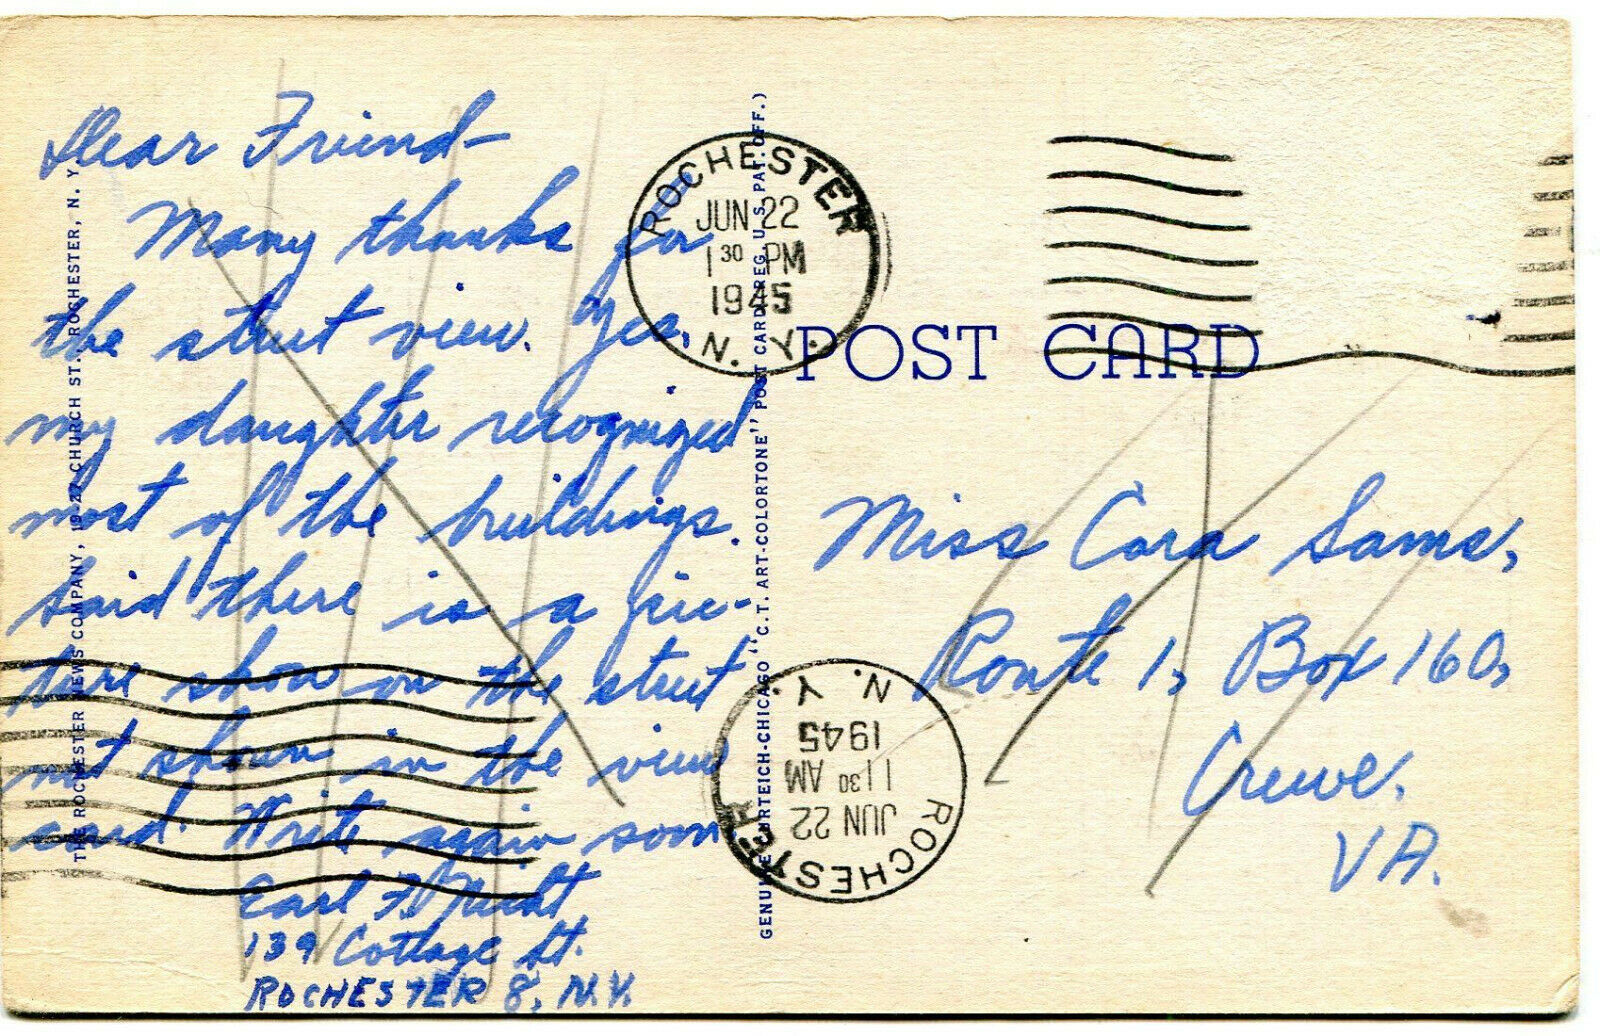 Dear Friend-
Many thanks for
the street view. Yes,
my daughter recognized
most of the buildings.
Said there is a pic-
ture show on the street
not shown in the view
card. Write again soon
Earl F.
139 Cottage St.
ROCHESTER 8, N.Y.
THE ROCHESTER NEWS COMPANY, 19-27 CHURCH ST. ROCHESTER, N. Y.
GENUINE CURTEICH-CHICAGO "C. T. ART-COLORTONE" POST CARD (REG. U. S. PAT. OFF.)
ROCHESTER
JUN 22
1 30 PM
1945
N. Y.
POST CARD
Miss Cora Sams,
Route 1, Box 160,
Crewe,
VA.
ROCHESTER
JUN 22
11 30 AM
1945
N. Y.